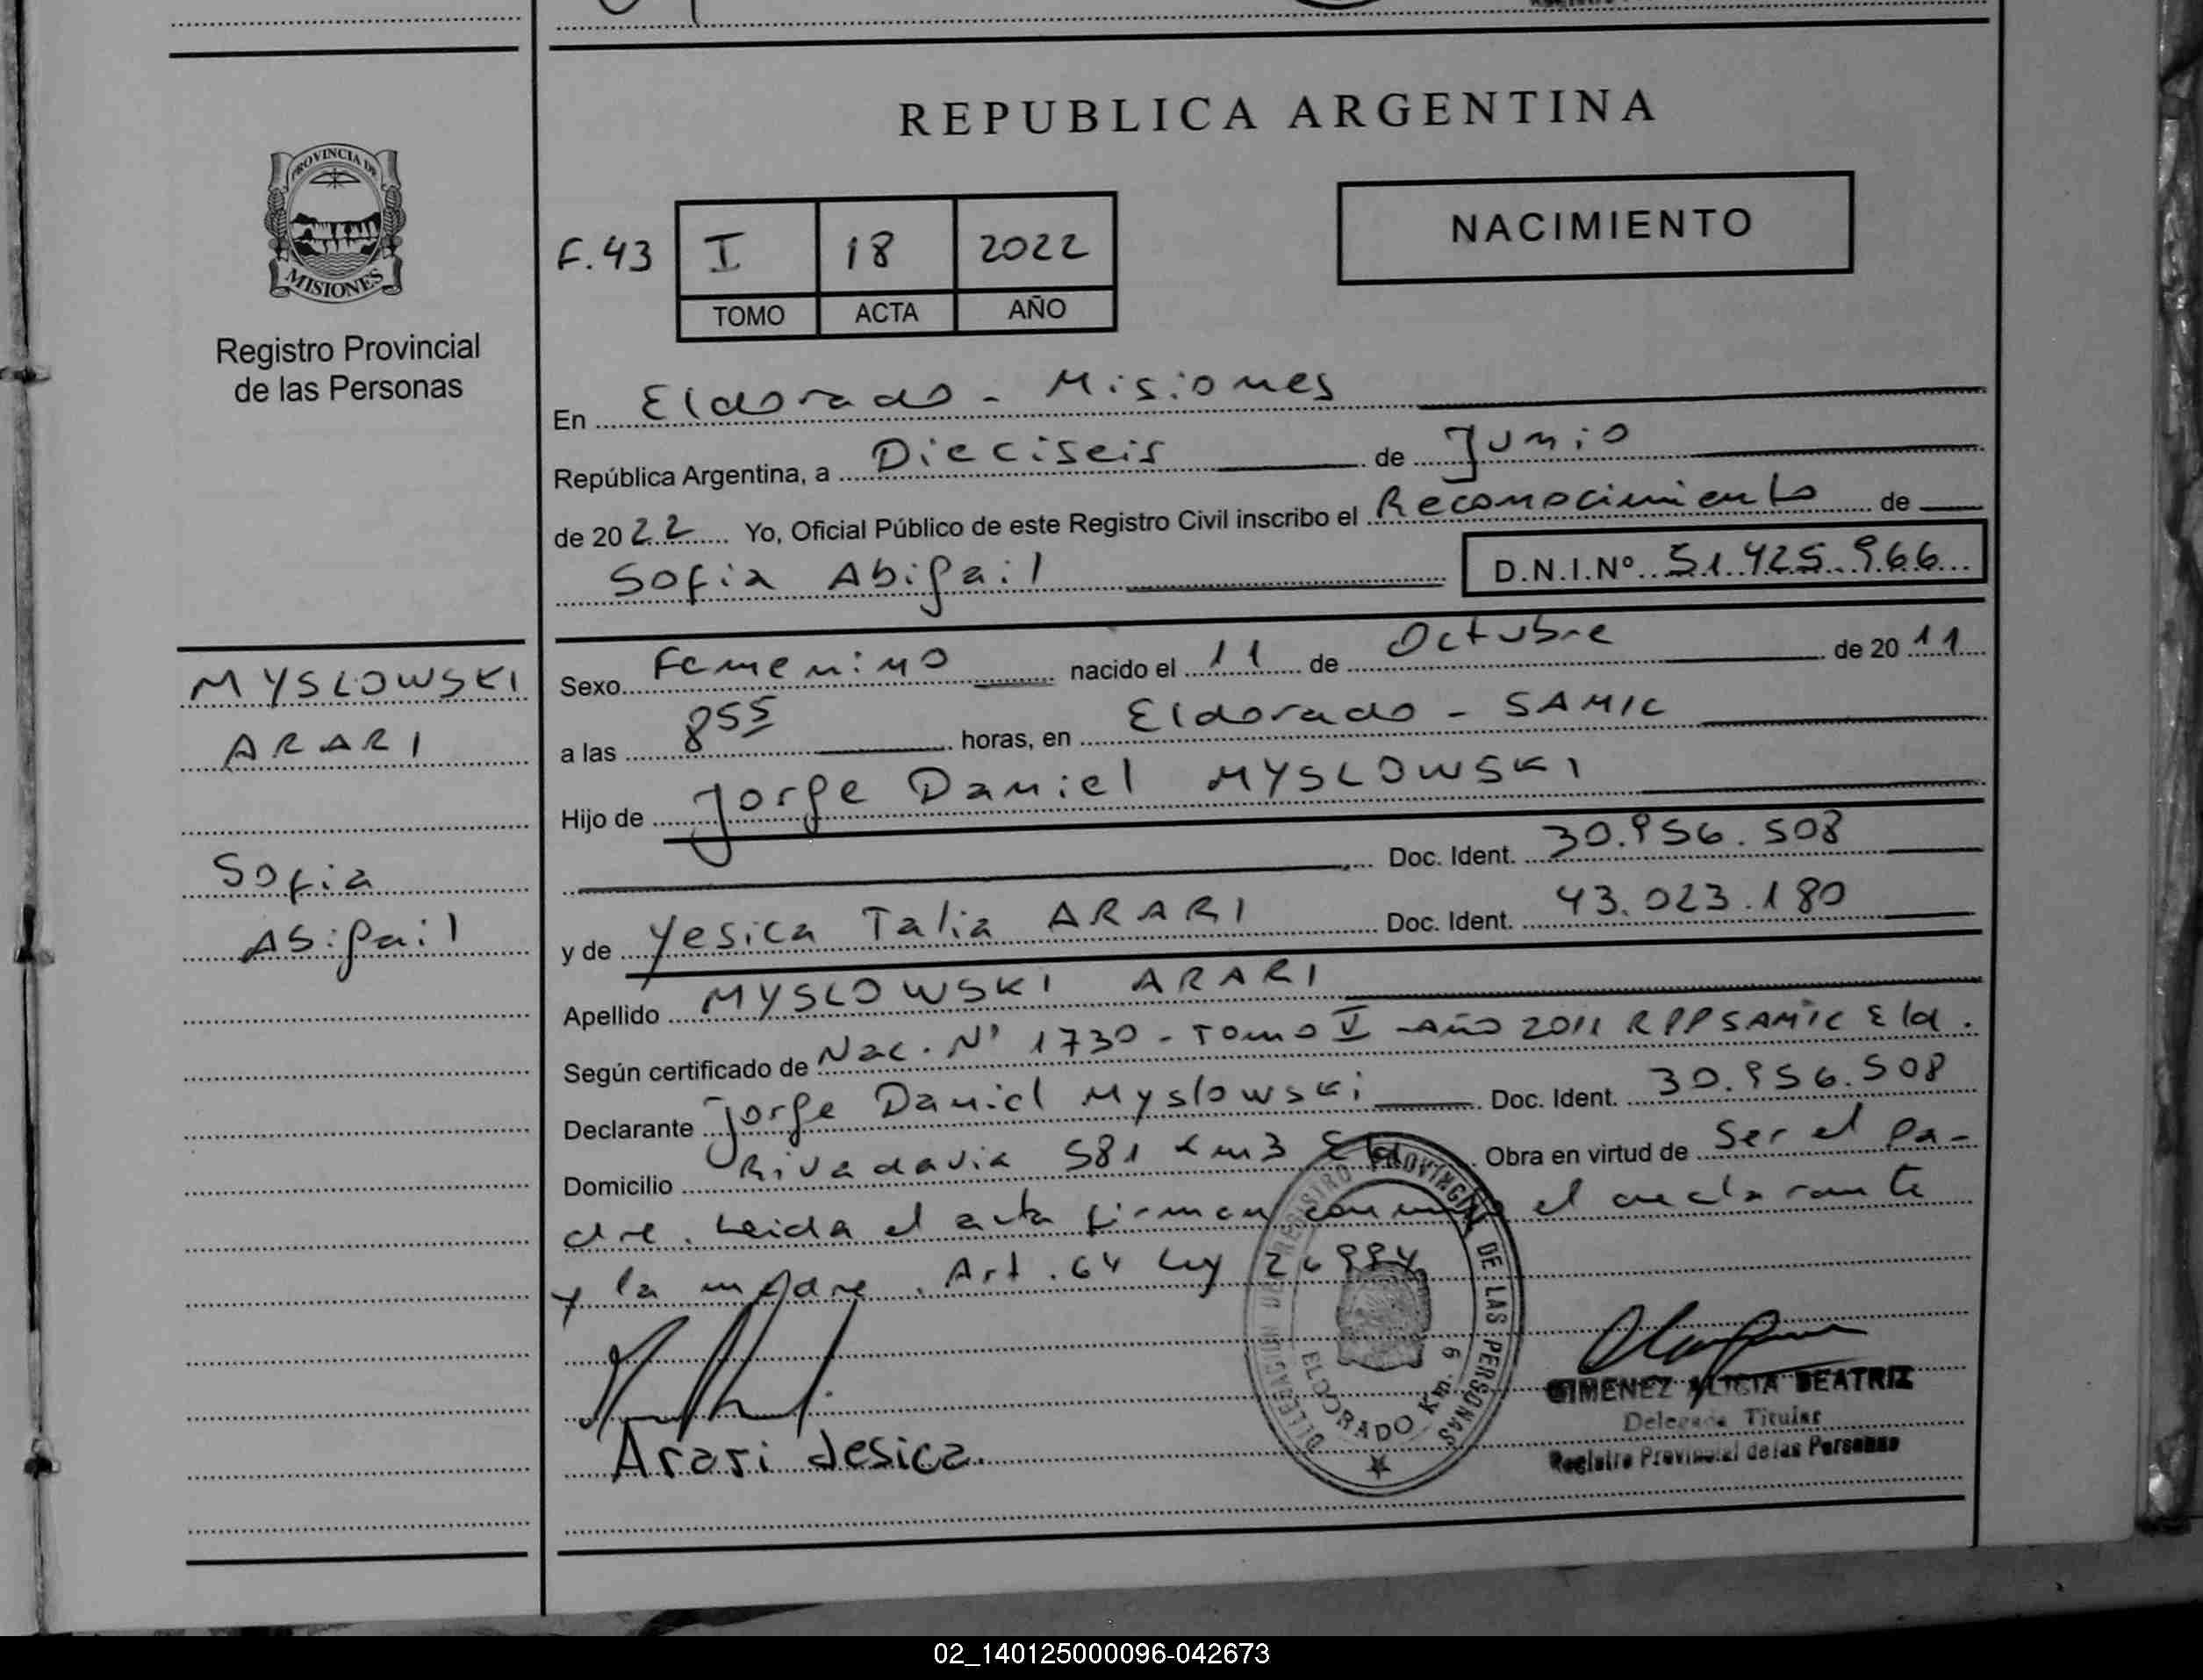 REPUBLICA ARGENTINA
PROVINCIA DE
MISIONES
Registro Provincial
de las Personas
NACIMIENTO
F.43 I 18 2022
TOMO ACTA AÑO
En Eldorado - Misiones
República Argentina, a Dieciseis de Junio
de 2022 Yo, Oficial Público de este Registro Civil inscribo el Reconocimiento de
Sofia Abigail D.N.I.Nº 51.425.966
MYSLOWSKI
ARARI
Sofia
Abigail
Sexo Femenino nacido el 11 de Octubre de 2011
a las 8 55 horas, en Eldorado - SAMIC
Hijo de Jorge Daniel MYSLOWSKI
Doc. Ident. 30.956.508
y de Yesica Talia ARARI Doc. Ident. 43.023.180
Apellido MYSLOWSKI ARARI
Según certificado de Nac. Nº 1730 - Tomo V - Año 2011 RPPSAMIC Eld.
Declarante Jorge Daniel Myslowski Doc. Ident. 30.956.508
Domicilio Rivadavia 581 Km3 Eld Obra en virtud de Ser el Pa-
dre. Leida el acta firman conmigo el declarante
y la madre. Art. 64 Ley 26994
Arari Jesica.
DELEGACION DE REGISTRO PROVINCIAL DE LAS PERSONAS
ELDORADO Km. 9
GIMENEZ ALICIA BEATRIZ
Delegada Titular
Registro Provincial de las Personas
02_140125000096-042673